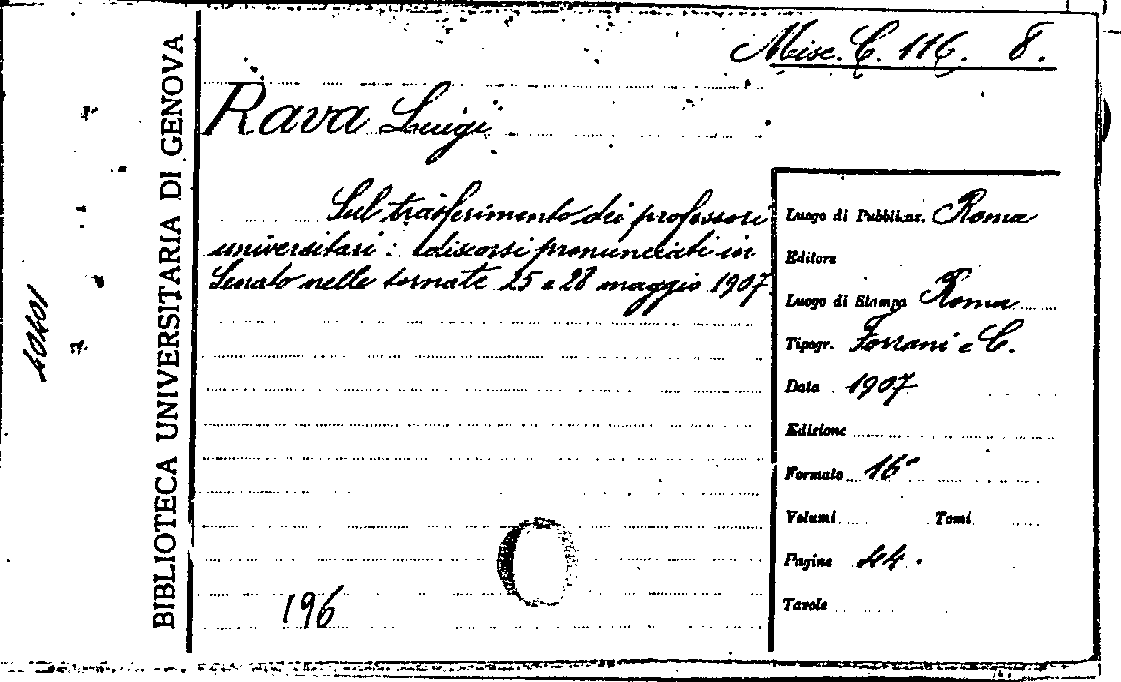 Misc. C. 116. 8.
Rava Luigi
Sul trasferimento dei professori
universitari: discorsi pronunciati in
Senato nelle tornate 25 e 28 maggio 1907
196
BIBLIOTECA UNIVERSITARIA DI GENOVA
Luogo di Pubblicaz. Roma
Editore
Luogo di Stampa Roma
Tipogr. Forzani e C.
Data 1907
Edizione
Formato 16°
Volumi Tomi
Pagine 44.
Tavole